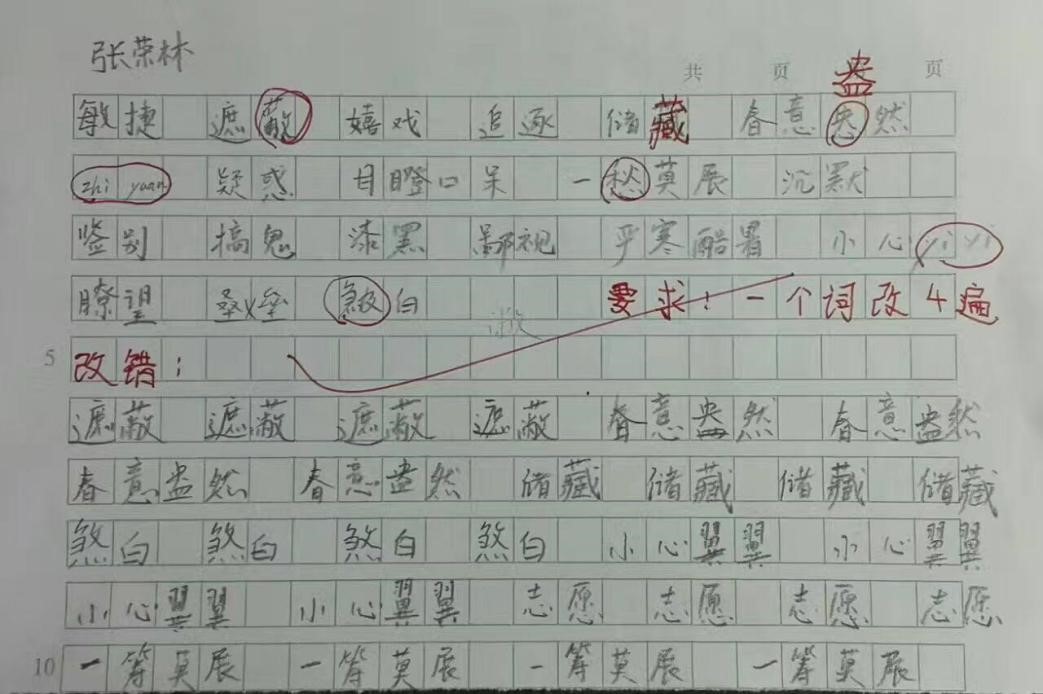 张荣林
共 页 页
盎
敏捷 遮蔽 嬉戏 追逐 储藏 春意 然
zhi yuan 疑惑 目瞪口呆 一愁莫展 沉默
鉴别 搞鬼 漆黑 鄙视 严寒酷暑 小心yi yi
瞭望 白 要求：一个词改4遍
5 改错：
遮蔽 遮蔽 遮蔽 遮蔽 春意盎然 春意盎然
春意盎然 春意盎然 储藏 储藏 储藏 储藏
煞白 煞白 煞白 煞白 小心翼翼 小心翼翼
小心翼翼 小心翼翼 志愿 志愿 志愿 志愿
10 一筹莫展 一筹莫展 一筹莫展 一筹莫展